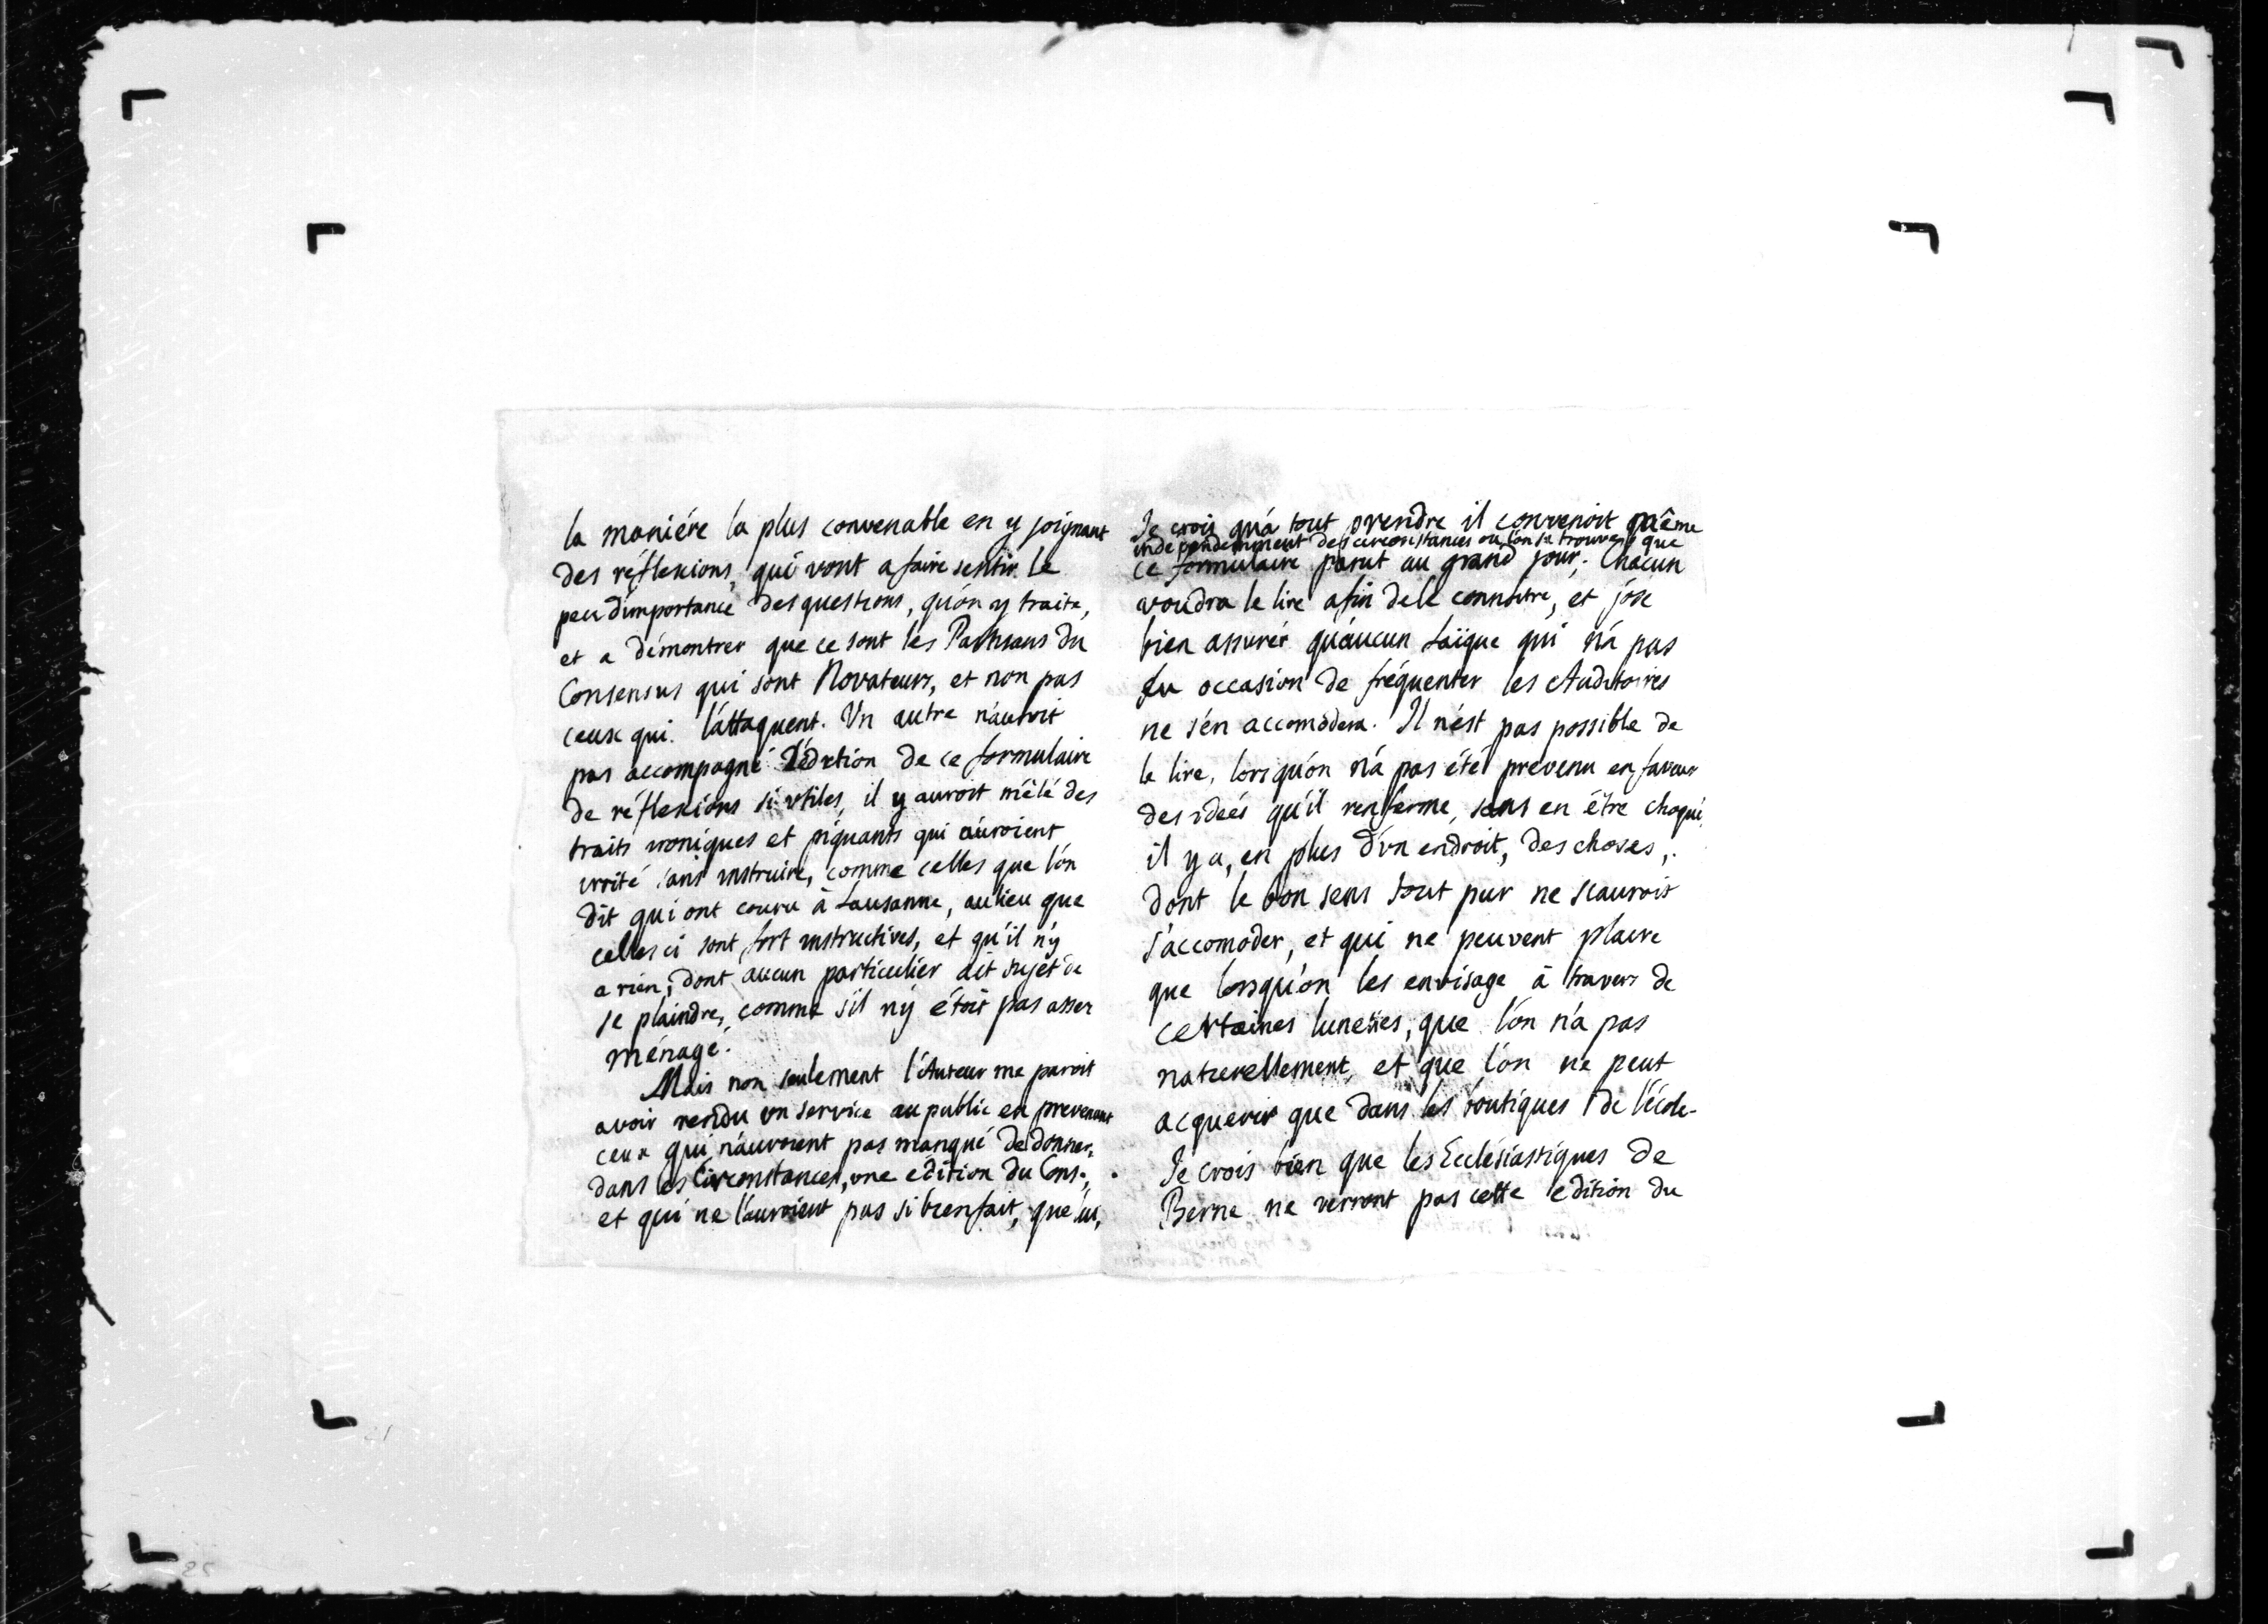 la maniére la plus convenable en y joignant
des réflexions, qui vont a faire sentir le
peu d'importance des questions, qu'on y traite,
et a démontrer que ce sont les Partisans du
Consensus qui sont Novateurs, et non pas
ceux qui l'attaquent. Un autre n'auroit
pas accompagné l'édition de ce formulaire
de réflexions si utiles, il y auroit mêlé des
traits ironiques et piquants qui auroient
irrité sans instruire, comme celles que l'on
dit qui ont couru à Lausanne, au lieu que
celles ci sont fort instructives, et qu'il n'y
a rien, dont aucun particulier ait sujet de
se plaindre, comme s'il n'y étoit pas assez
ménagé.
Mais non seulement l'Auteur me paroit
avoir rendu un service au public en prevenant
ceux qui n'auroient pas manqué de donner,
dans les Circonstances, une edition du Cons.,
et qui ne l'auroient pas si bien fait, que lui,
Je crois qu'a tout prendre il convenoit même
independemment des circonstances ou l'on se trouve, que
ce formulaire parut au grand jour; Chacun
voudra le lire afin de le connoitre, et j'ose
bien assurér qu'aucun Laïque qui n'a pas
eu occasion de fréquenter les Auditoires
ne s'en accomodera. Il n'est pas possible de
le lire, lorsqu'on n'a pas été prevenu en faveur
des ideés qu'il renferme, sans en être choqué,
il y a, en plus d'un endroit, des choses,
dont le bon sens tout pur ne scauroit
s'accomoder, et qui ne peuvent plaire
que lorsqu'on les envisage à travers de
certaines lunettes, que l'on n'a pas
naturellement, et que l'on ne peut
acquerir que dans les boutiques de l'école.
Je crois bien que les Ecclésiastiques de
Berne ne verront pas cette edition du